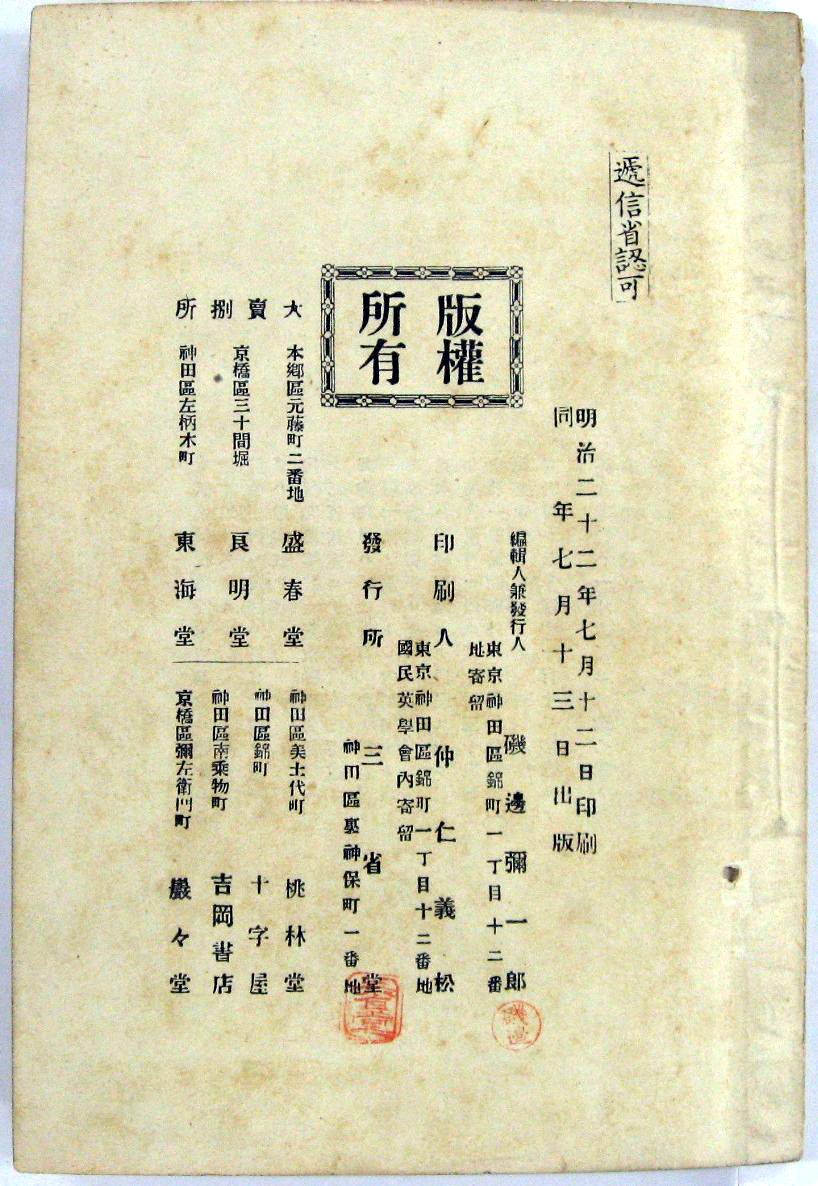 遞信省認可
明治二十二年七月十二日印刷
同年七月十三日出版
版權
所有
編輯人兼發行人
磯邊彌一郎
東京神田區錦町一丁目十二番
地寄留
印刷人
仲仁義松
東京神田區錦町一丁目十二番地
國民英學會內寄留
發行所
三省堂
神田區裏神保町一番地
大賣捌所
本鄕區元藤町二番地
盛春堂
京橋區三十間堀
良明堂
神田區左柄木町
東海堂
神田區美土代町
桃林堂
神田區錦町
十字屋
神田區南乘物町
吉岡書店
京橋區彌左衛門町
巖々堂